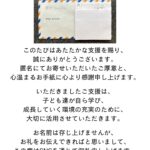 このたびはあたたかな支援を賜り、
誠にありがとうございます。
匿名にてお寄せいただいたご厚意と、
心温まるお手紙に心より感謝申し上げます。
いただきましたご支援は、
子ども達が自ら学び、
成長していく環境の充実のために、
大切に活用させていただきます。
お名前は存じ上げませんが、
お礼をお伝えできればと思いまして、